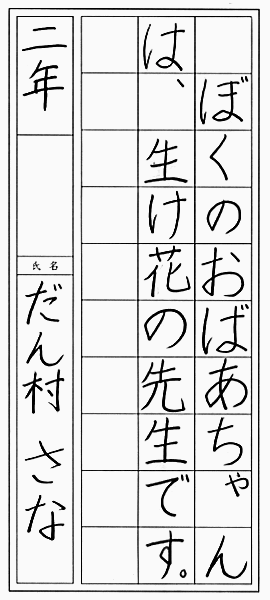 ぼくのおばあちゃん
は、生け花の先生です。
二年
氏名
だん村 さな